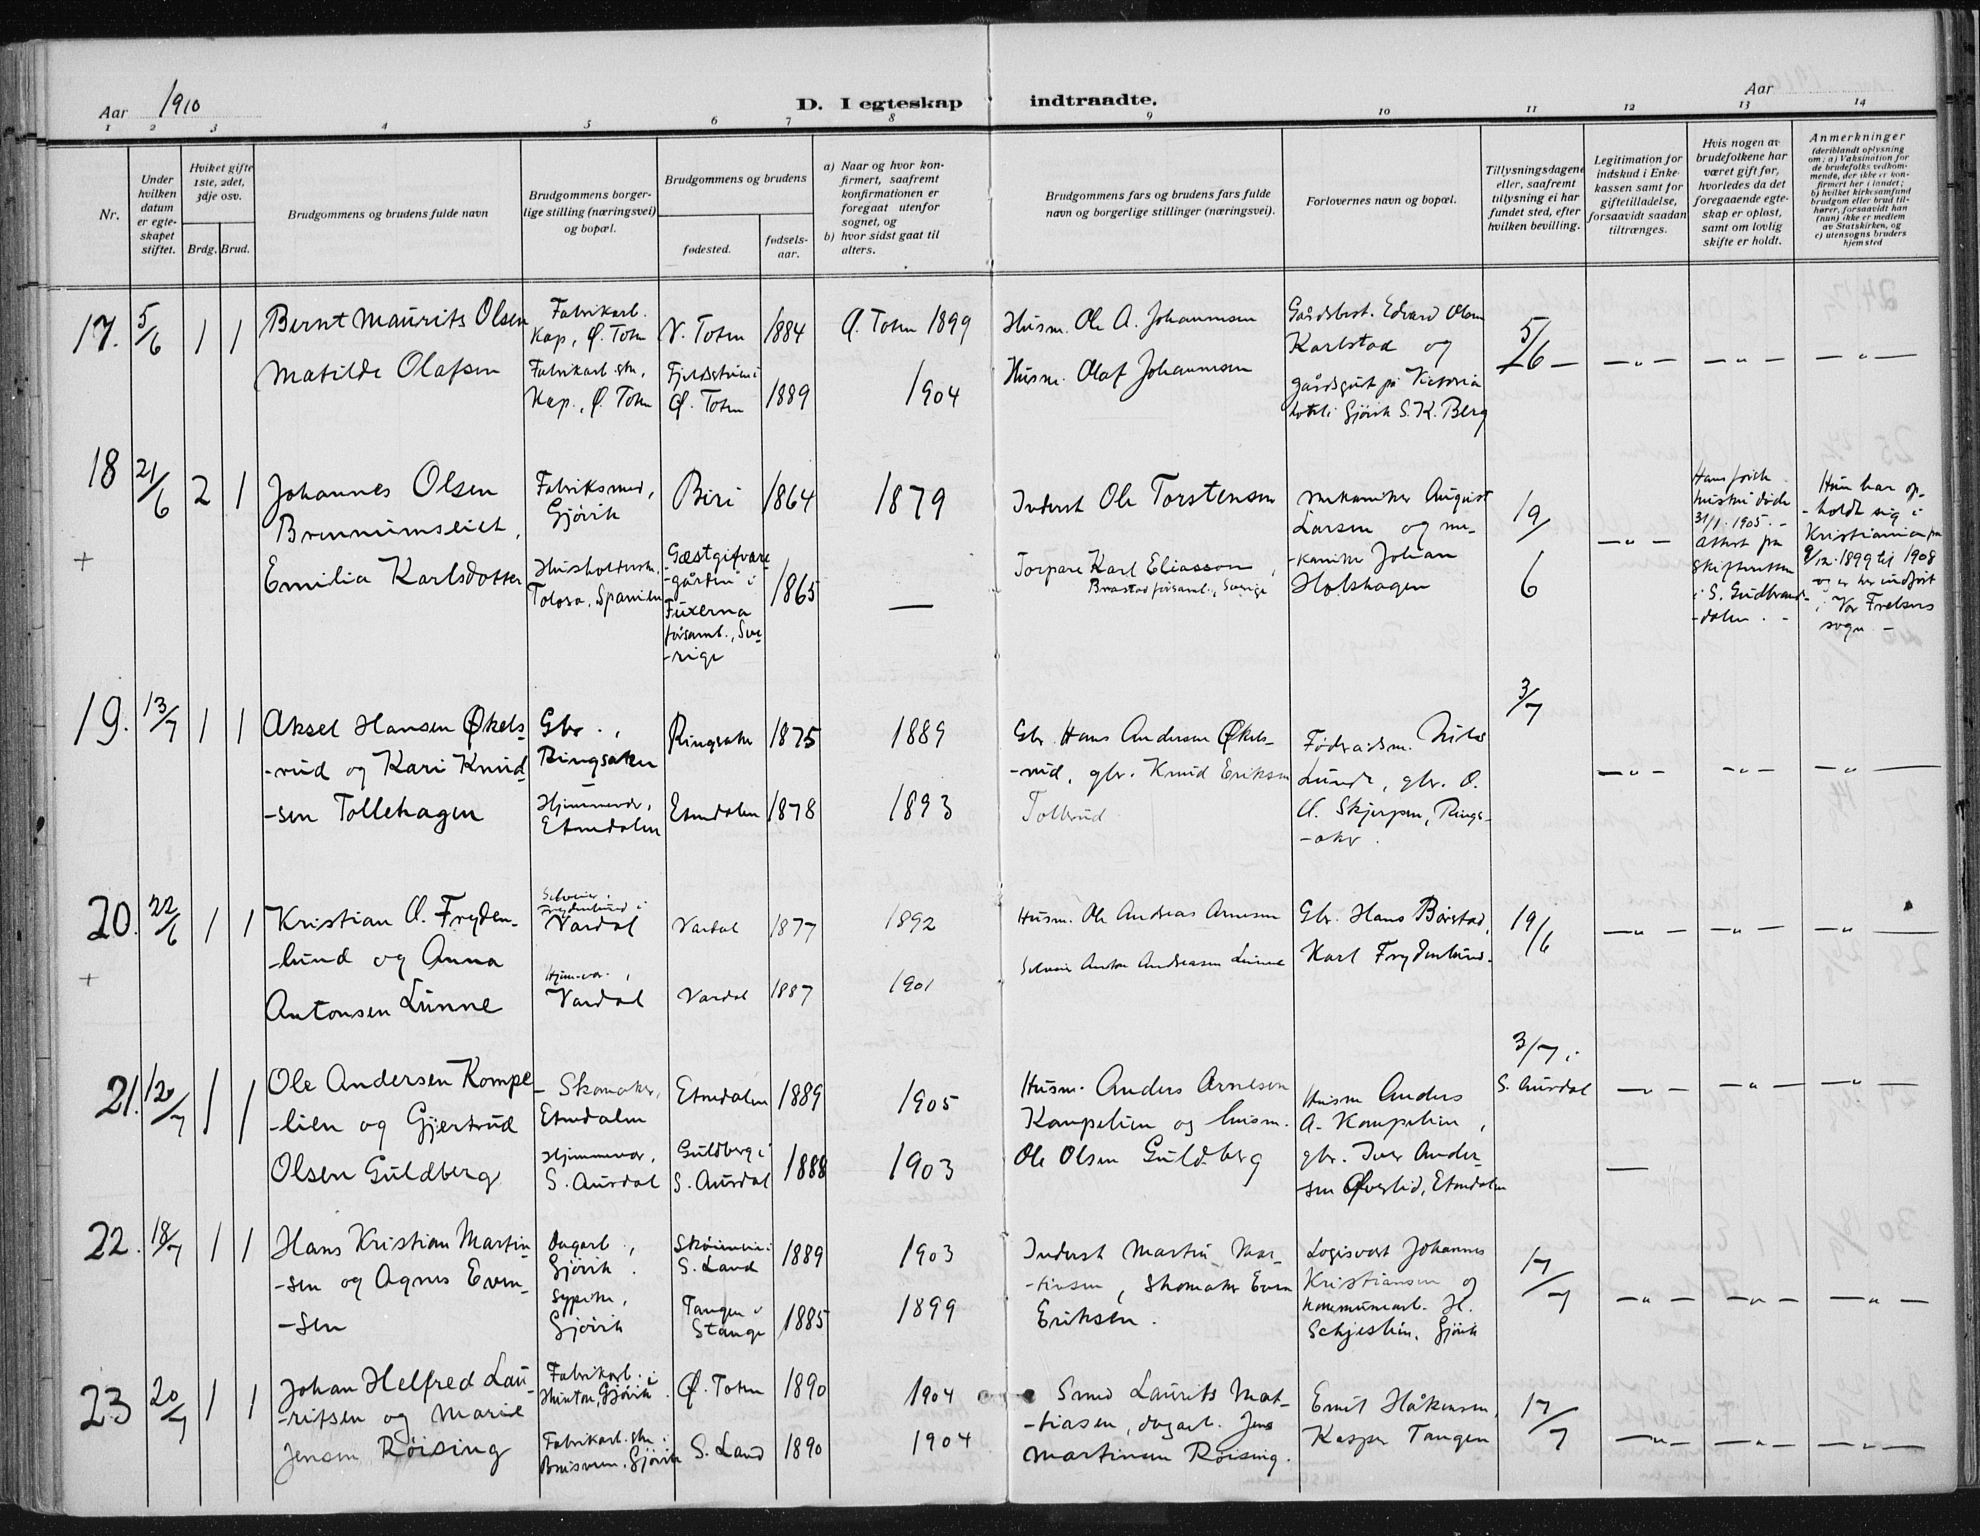 Aar 1910
D. I egteskap indtraadte.
Aar
1 2 3 4 5 6 7 8 9 10 11 12 13 14
Nr.
Under hvilken datum er egteskapet stiftet.
Hviket gifte 1ste, 2det, 3dje osv.
Brdg. Brud.
Brudgommens og brudens fulde navn
Brudgommens borgerlige stilling (næringsvei) og bopæl.
Brudgommens og brudens
fødested.
fødsels-aar.
a) Naar og hvor konfirmert, saafremt konfirmationen er foregaat utenfor sognet, og
b) hvor sidst gaat til alters.
Brudgommens fars og brudens fars fulde navn og borgerlige stillinger (næringsvei).
Forlovernes navn og bopæl.
Tillysningsdagene eller, saafremt tillysning ei har fundet sted, efter hvilken bevilling.
Legitimation for indskud i Enkekassen samt for giftetilladelse, forsaavidt saadan tiltrænges.
Hvis nogen av brudefolkene har været gift før, hvorledes da det foregaaende egteskap er opløst, samt om lovlig skifte er holdt.
Anmerkninger (deriblandt oplysning om: a) Vaksination for de brudefolks vedkommende, der ikke er konfirmert her i landet; b) hvilket kirkesamfund brudgom eller brud tilhører, forsaavidt han (hun) ikke er medlem av Statskirken, og c) utensogns bruders hjemsted
17. 5/6 1 1 Bernt Maurits Olsen
Fabrikarb. Kap, Ø. Toten
V. Toten 1884 Ø. Toten 1899
Husm. Ole A. Johannesen
Edvard Olsen
Karlstad og
gårdsgut på Victoria
hotel i Gjøvik S. K. Berg
5/6
Matilde Olafsen
Kap., Ø. Toten
Ø. Toten 1889 1904
Husm. Olaf Johannesen
18 21/6 2 1 Johannes Olsen
Fabriksmed, Gjøvik
Biri 1864 1879
Inderst Ole Torstensen
mekaniker August
Larsen og me-
-kaniker Johan
Holshagen
19/6
31/1 1905. -
attest fra
skifteretten
i S. Gudbrands-
-dalen. -
Hun har op-
-holdt sig i
Kristiania fra
9/12 1899 til 1908
og er her indført
i Vor Frelsers
sogn. -
+ Emilia Karlsdotter
Tolosa, Spanien
Gæstgifvare-
-gården i
Fuxerna
församl., Sve-
-rige
1865 —
Torpare Karl Eliasson,
Brastad församl., Sverige
19. 13/7 1 1 Aksel Hansen Økels-
-rud og Kari Knud-
-sen Tollehagen
Gbr., Ringsaker
Ringsaker 1875 1889
Gbr. Hans Andersen Økels-
-rud, gbr. Knud Eriksen
Tollerud
Føderaadsm. Nils
Lunde, gbr. O.
O. Skjerpen, Rings-
-aker.
3/7
Hjemmevær., Etnedalen
Etnedalen 1878 1893
20. 22/6 1 1 Kristian O. Fryden-
-lund og Anna
Antonsen Lunne
Selveier i Frydenlund i Vardal
Vardal 1877 1892
Husm. Ole Andreas Arnesen
Gbr. Hans Børstad,
Karl Frydenlund.
19/6
+ Hjemmevær., Vardal
Vardal 1887 1901
Selveier Anton Andreasen Lunne
21. 20/7 1 1 Ole Andersen Kompe-
-lien og Gjertrud
Olsen Guldberg
Skomaker, Etnedalen
Etnedalen 1889 1905
Husm. Anders Arnesen
Kompelien og husm.
Ole Olsen Guldberg
Husm Anders
A. Kompelien,
gbr. Iver Ander-
-sen Øverlid, Etnedalen
3/7 i
S. Aurdal
Hjemmevær., S. Aurdal
Guldberg i S. Aurdal 1888 1903
22. 18/7 1 1 Hans Kristian Martin-
-sen og Agnes Even-
-sen
Dagarb., Gjøvik.
S. Land 1889 1903
Inderst Martin Mar-
-tinsen, skomaker Even
Eriksen.
Logisvert Johannes
Kristiansen og
kommunearb. H.
Schjeslien, Gjøvik
17/7
Syerske, Gjøvik
Tangen i Stange 1885 1899
23 20/7 1 1 Johan Helfred Lau-
-ritsen og Marie
Jensen Røising
Fabrikarb. i Hunton, Gjøvik.
Ø. Toten 1890 1904
Smed Laurits Mat-
-tiasen, dagarb. Jens
Martinsen Røising.
Emil Håkensen,
Kasper Tangen
17/7
Gjøvik
S. Land 1890 1904